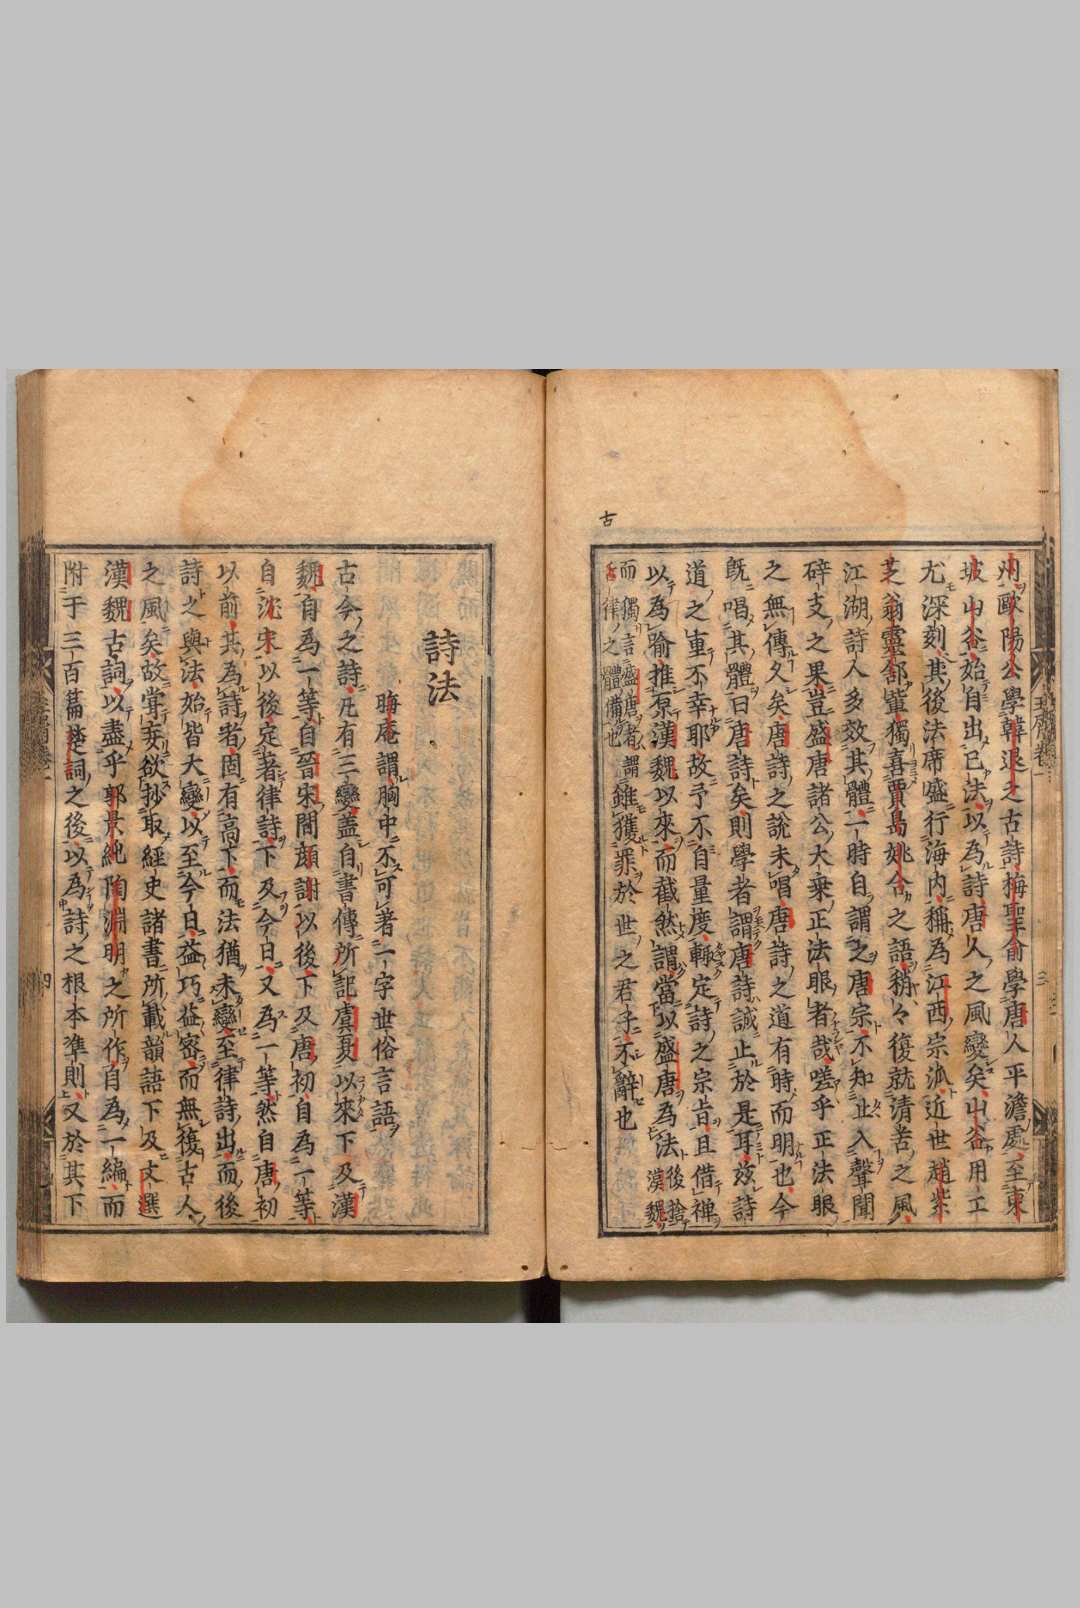 古
州歐陽公學韓退之古詩梅聖俞學唐人平澹處至東
坡山谷始自出己法以為詩唐人之風變矣山谷用工
尤深刻其後法席盛行海內稱為江西宗派近世趙紫
芝翁靈舒輩獨喜賈島姚合之語稍々復就清苦之風
江湖詩人多效其體一時自謂之唐宗不知止入聲聞
碎支之果豈盛唐諸公大乘正法眼者哉嗟乎正法眼
之無傳久矣唐詩之說未唱唐詩之道有時而明也今
既唱其體曰唐詩矣則學者謂唐詩誠止於是耳茲詩
道之重不幸耶故予不自量度輒定詩之宗旨且借禪
以為喻推原漢魏以來而截然謂當以盛唐為法後捨漢魏
而獨言盛唐者謂古律之體備也雖獲罪於世之君子不辭也
詩法
晦庵謂胸中不可著一字世俗言語
古今之詩凡有三變盖自書傳所記虞夏以來下及漢
魏自為一等自晉宋間顔謝以後下及唐初自為一等
自沈宋以後定著律詩下及今日又為一等然自唐初
以前其為詩者固有高下而法猶未變至律詩出而後
詩之與法始皆大變以至今日益巧益密而無復古人
之風矣故甞妄欲抄取經史諸書所載韻語下及文選
漢魏古詞以盡乎郭景純陶淵明之所作自為一編而
附于三百篇楚詞之後以為詩之根本準則又於其下
四